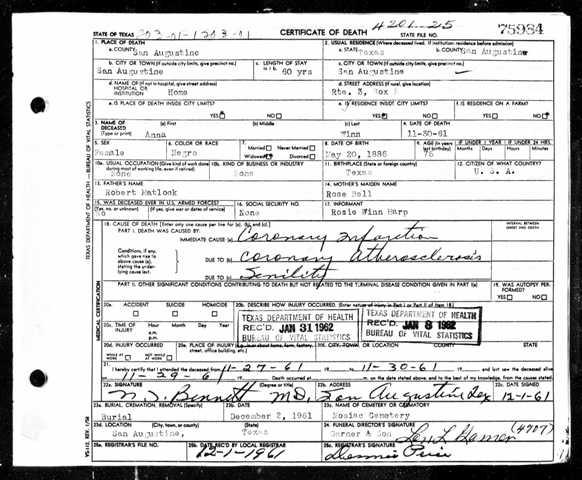 4201-25
75984
STATE OF TEXAS 203-01-1203-01 CERTIFICATE OF DEATH STATE FILE NO.
1. PLACE OF DEATH
a. COUNTY San Augustine
2. USUAL RESIDENCE (Where deceased lived. If institution: residence before admission)
a. STATE Texas b. COUNTY San Augustine
b. CITY OR TOWN (If outside city limits, give precinct no.) San Augustine
c. LENGTH OF STAY in 1 b. 60 yrs
c. CITY OR TOWN (If outside city limits, give precinct no.) San Augustine
d. NAME OF (If not in hospital, give street address) HOSPITAL OR INSTITUTION Home
d. STREET ADDRESS (If rural, give location) Rte. 3, Box
e. IS PLACE OF DEATH INSIDE CITY LIMITS? YES NO
e. IS RESIDENCE INSIDE CITY LIMITS? YES NO
f. IS RESIDENCE ON A FARM? YES NO
3. NAME OF DECEASED (Type or print) (a) First Anna (b) Middle (c) Last Winn
4. DATE OF DEATH 11-30-61
5. SEX Female
6. COLOR OR RACE Negro
7. Married Never Married Widowed Divorced
8. DATE OF BIRTH May 20, 1886
9. AGE (In years last birthday) 75
IF UNDER 1 YEAR Months Days IF UNDER 24 HRS. Hours Minutes
10a. USUAL OCCUPATION (Give kind of work done during most of working life, even if retired) None
10b. KIND OF BUSINESS OR INDUSTRY None
11. BIRTHPLACE (State or foreign country) Texas
12. CITIZEN OF WHAT COUNTRY? U. S. A.
13. FATHER'S NAME Robert Matlock
14. MOTHER'S MAIDEN NAME Rose Bell
15. WAS DECEASED EVER IN U.S. ARMED FORCES? (Yes, no, or unknown) (If yes, give war or dates of service) No
16. SOCIAL SECURITY NO. None
17. INFORMANT Rosie Winn Harp
18. CAUSE OF DEATH (Enter only one cause per line for (a), (b), and (c).)
INTERVAL BETWEEN ONSET AND DEATH
PART I. DEATH WAS CAUSED BY:
IMMEDIATE CAUSE (a) Coronary Infarction
Conditions, if any, which gave rise to above cause (a), stating the underlying cause last.
DUE TO (b) Coronary Atherosclerosis
DUE TO (c) Senility
PART II. OTHER SIGNIFICANT CONDITIONS CONTRIBUTING TO DEATH BUT NOT RELATED TO THE TERMINAL DISEASE CONDITION GIVEN IN PART I(a)
19. WAS AUTOPSY PERFORMED? YES NO
20a. ACCIDENT SUICIDE HOMICIDE
20b. DESCRIBE HOW INJURY OCCURRED. (Enter nature of injury in Part I or Part II of item 18.)
TEXAS DEPARTMENT OF HEALTH
REC'D. JAN 31 1962
BUREAU OF VITAL STATISTICS
TEXAS DEPARTMENT OF HEALTH
REC'D. JAN 8 1962
BUREAU OF VITAL STATISTICS
20c. TIME OF INJURY Hour Month Day Year a.m. p.m.
20d. INJURY OCCURRED WHILE AT WORK NOT WHILE AT WORK
20e. PLACE OF INJURY (e.g. in or about home, farm, factory, street, office building, etc.)
20f. CITY, TOWN, OR LOCATION COUNTY STATE
21. I hereby certify that I attended the deceased from 11-27-61 to 11-30-61 and last saw the deceased alive
on 11-29-61 Death occurred at m. on the date stated above; and to the best of my knowledge, from the causes stated.
22a. SIGNATURE (Degree or title) Bennett MD
22b. ADDRESS San Augustine Tex
22c. DATE SIGNED 12-1-61
23a. BURIAL, CREMATION, REMOVAL (Specify) Burial
23b. DATE December 2, 1961
23c. NAME OF CEMETERY OR CREMATORY Mosiac Cemetery
23d. LOCATION (City, town, or county) (State) San Augustine, Texas
24. FUNERAL DIRECTOR'S SIGNATURE Garner & Son (4707)
25a. REGISTRAR'S FILE NO.
25b. DATE REC'D BY LOCAL REGISTRAR 12-1-1961
25c. REGISTRAR'S SIGNATURE
TEXAS DEPARTMENT OF HEALTH — BUREAU OF VITAL STATISTICS
MEDICAL CERTIFICATION